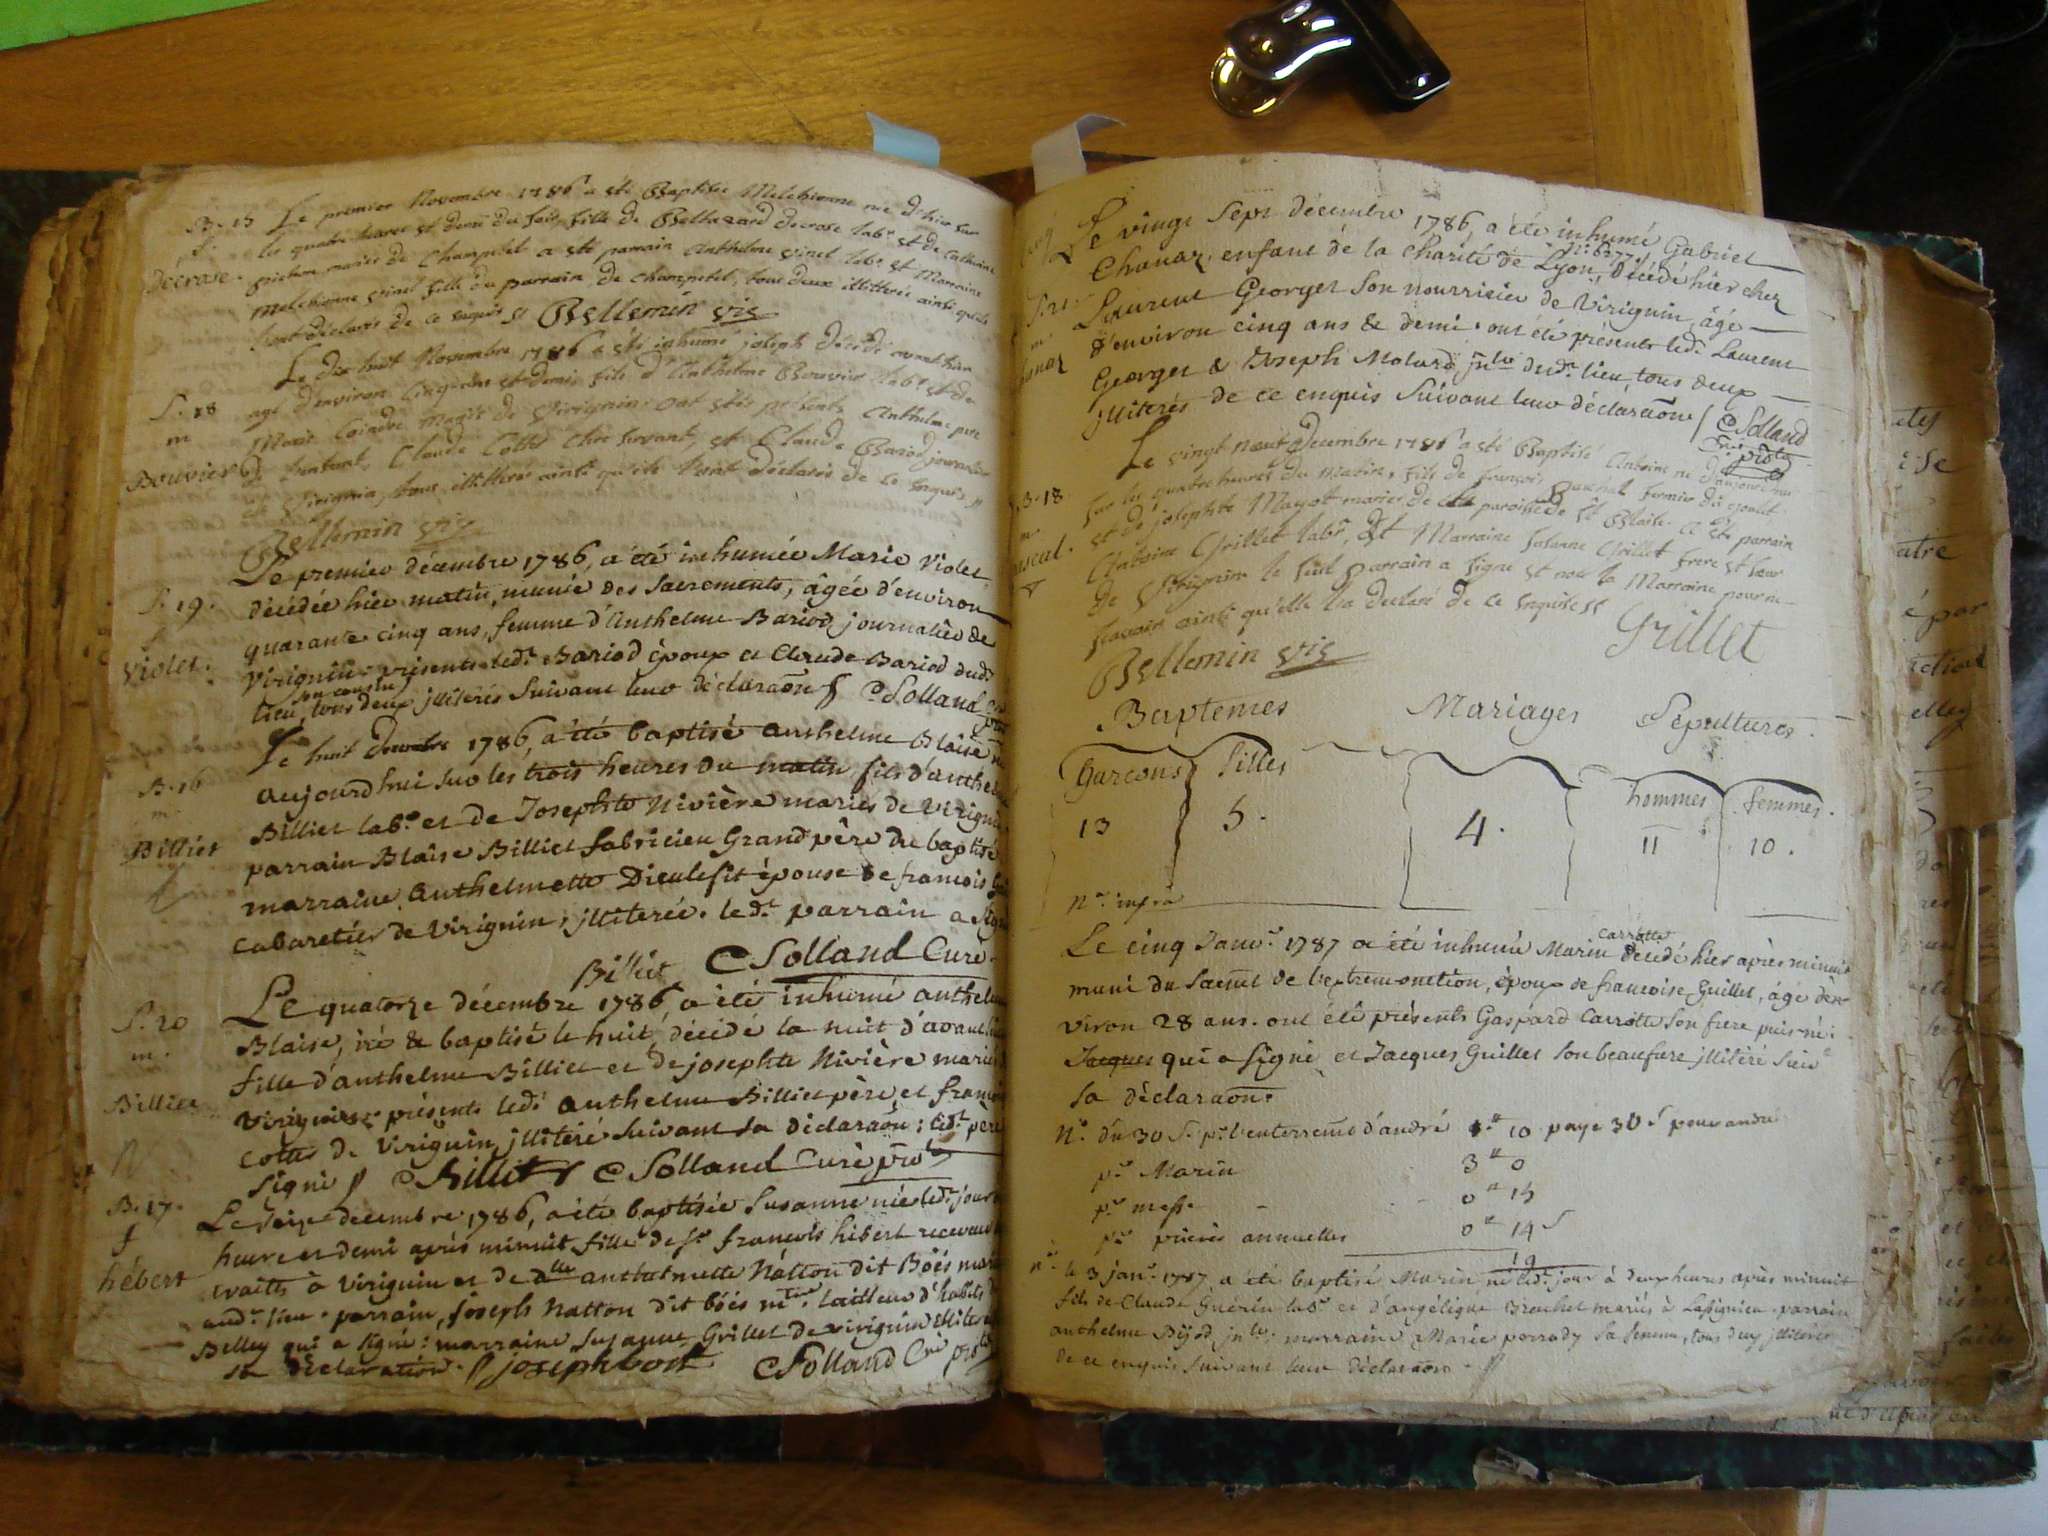 B. 15 Le premier Novembre 1786 a été Baptisée Melchionne née d'hier sur
f. les quatre heures et demi du soir, fille de Balthazard decrose labr et de Catherine
decrose. mariés de Champtel a été parrain Anthelme vinet labr et Marraine
Melchionne vinet fille du parrain de champtel, tous deux illitterés ainsi qu'ils
l'ont déclarés de ce enquis // Bellemin vic
Le dix huit Novembre 1786 a été inhumé joseph décédé avant hier
S. 18 agé d'environ cinq ans et demi, fils d'Anthelme Bouvier labr et de
m Marie mariés de Virignin. ont étés présents Anthelme père
Bouvier de l'enfant, Claude Cottes Clerc servant, et Claude Bariod journalier
de Virignin, tous illitterés ainsi qu'ils l'ont déclarés de ce enquis //
Bellemin vic
Le premier décembre 1786, a été inhumée Marie Violet
S. 19. décédée hier matin, munie des Sacrements, âgée d'environ
f quarante cinq ans, femme d'Anthelme Bariod journalier de
Violet. Virignin. présents ledt Bariod époux et Claude Bariod dudt
lieu, tous deux jllitérés suivant leur déclaraõn // C Solland
Le huit decembre 1786, a été baptisé anthelme Blaise né
B. 16 aujourd'hui sur les trois heures du matin fils d'anthelme
m Billiet labr et de Josephte Nivière mariés de Virignin
Billiet parrain Blaise Billiet fabricien Grand père du baptisé
marraine Anthelmette Dieulefit épouse de francois
cabaretier de Virignin, jllitérée. ledt parrain a signé
Billiet C Solland Curé
Le quatorze décembre 1786 a été inhumé anthelme
S. 20 Blaise, né & baptisé le huit, décédé la nuit d'avant hier
m. fille d'anthelme Billiet et de josephte Nivière mariés
Billiet Virignin. présents ledt anthelme Billiet père et francois
cottes de Virignin jllitéré suivant sa déclaraõn; ledt père
signé // Billiet C Solland Curé
B. 17. Le seize decembre 1786, a été baptisée Susanne née ledt jour
f heure et demi après minuit fille de sr francois hébert receveur
hébert traites à Virignin et de dlle anthelmette Natton dit Boës mariés
audt lieu. parrain, joseph Natton dit boës mtre tailleur d'habits de
Belley qui a signé: marraine Susanne Grillet de virignin illitérée
sa déclaration. // joseph boit C Solland Curé
Le vingt sept décembre 1786, a été inhumé Gabriel
Chanaz enfant de la Charité de Lyon, N° 6277, décédé hier chez
S. 21 Laurent Georges son nourricier de Virignin, âgé
m d'environ cinq ans & demi. ont été présents ledt Laurent
Chanaz Georges & Joseph Molard, jnlr dudt lieu, tous deux
jllitérés de ce enquis suivant leur déclaraõn / C Solland
Le vingt neuf Decembre 1786 a été Baptisé Antoine né d'aujourd'hui
B. 18. sur les quatre heures du matin, fils de francois paschal fermier
m et de josephte Mayot mariés de la paroisse de St Blaise. a été parrain
pascal. Antoine Grillet labr, et Marraine Susanne Grillet frere et sœur
de Virignin le seul parrain a signé et non la Marraine pour ne
scavoir ainsi qu'elle l'a declaré de ce enquise //
Bellemin vic Grillet
Baptemes Mariages Sepultures.
Garcons filles hommes femmes.
13 5. 4. 11 10.
Na infrà
Le cinq Janvr 1787 a été inhumé Marin Carrotte decedé hier après minuit
muni du Sacmt de l'extremonction, époux de francoise Guillet, âgé d'en-
viron 28 ans. ont été présents Gaspard Carrotte son frere puis né
Jacques qui a signé et Jacques Guillet son beaufrere jllitéré suivt
sa déclaraõn.
Na du 30 S. pr l'enterremt d'andré 1 tt 10 payé 30 S pour andré
pr Marin 3 tt 0
pr messe 0 tt 15
pr prières annuelles 0 tt 14 S
19
na le 3 janvr 1787 a été baptisé Marin né ledt jour à deux heures après minuit
fils de Claude Guérin labr et d'angélique Brochet mariés à Lassignieu. parrain
anthelme Bijod jnlr. marraine Marie perrady sa femme, tous deux jllitérés
de ce enquis suivant leur déclaraõn. //